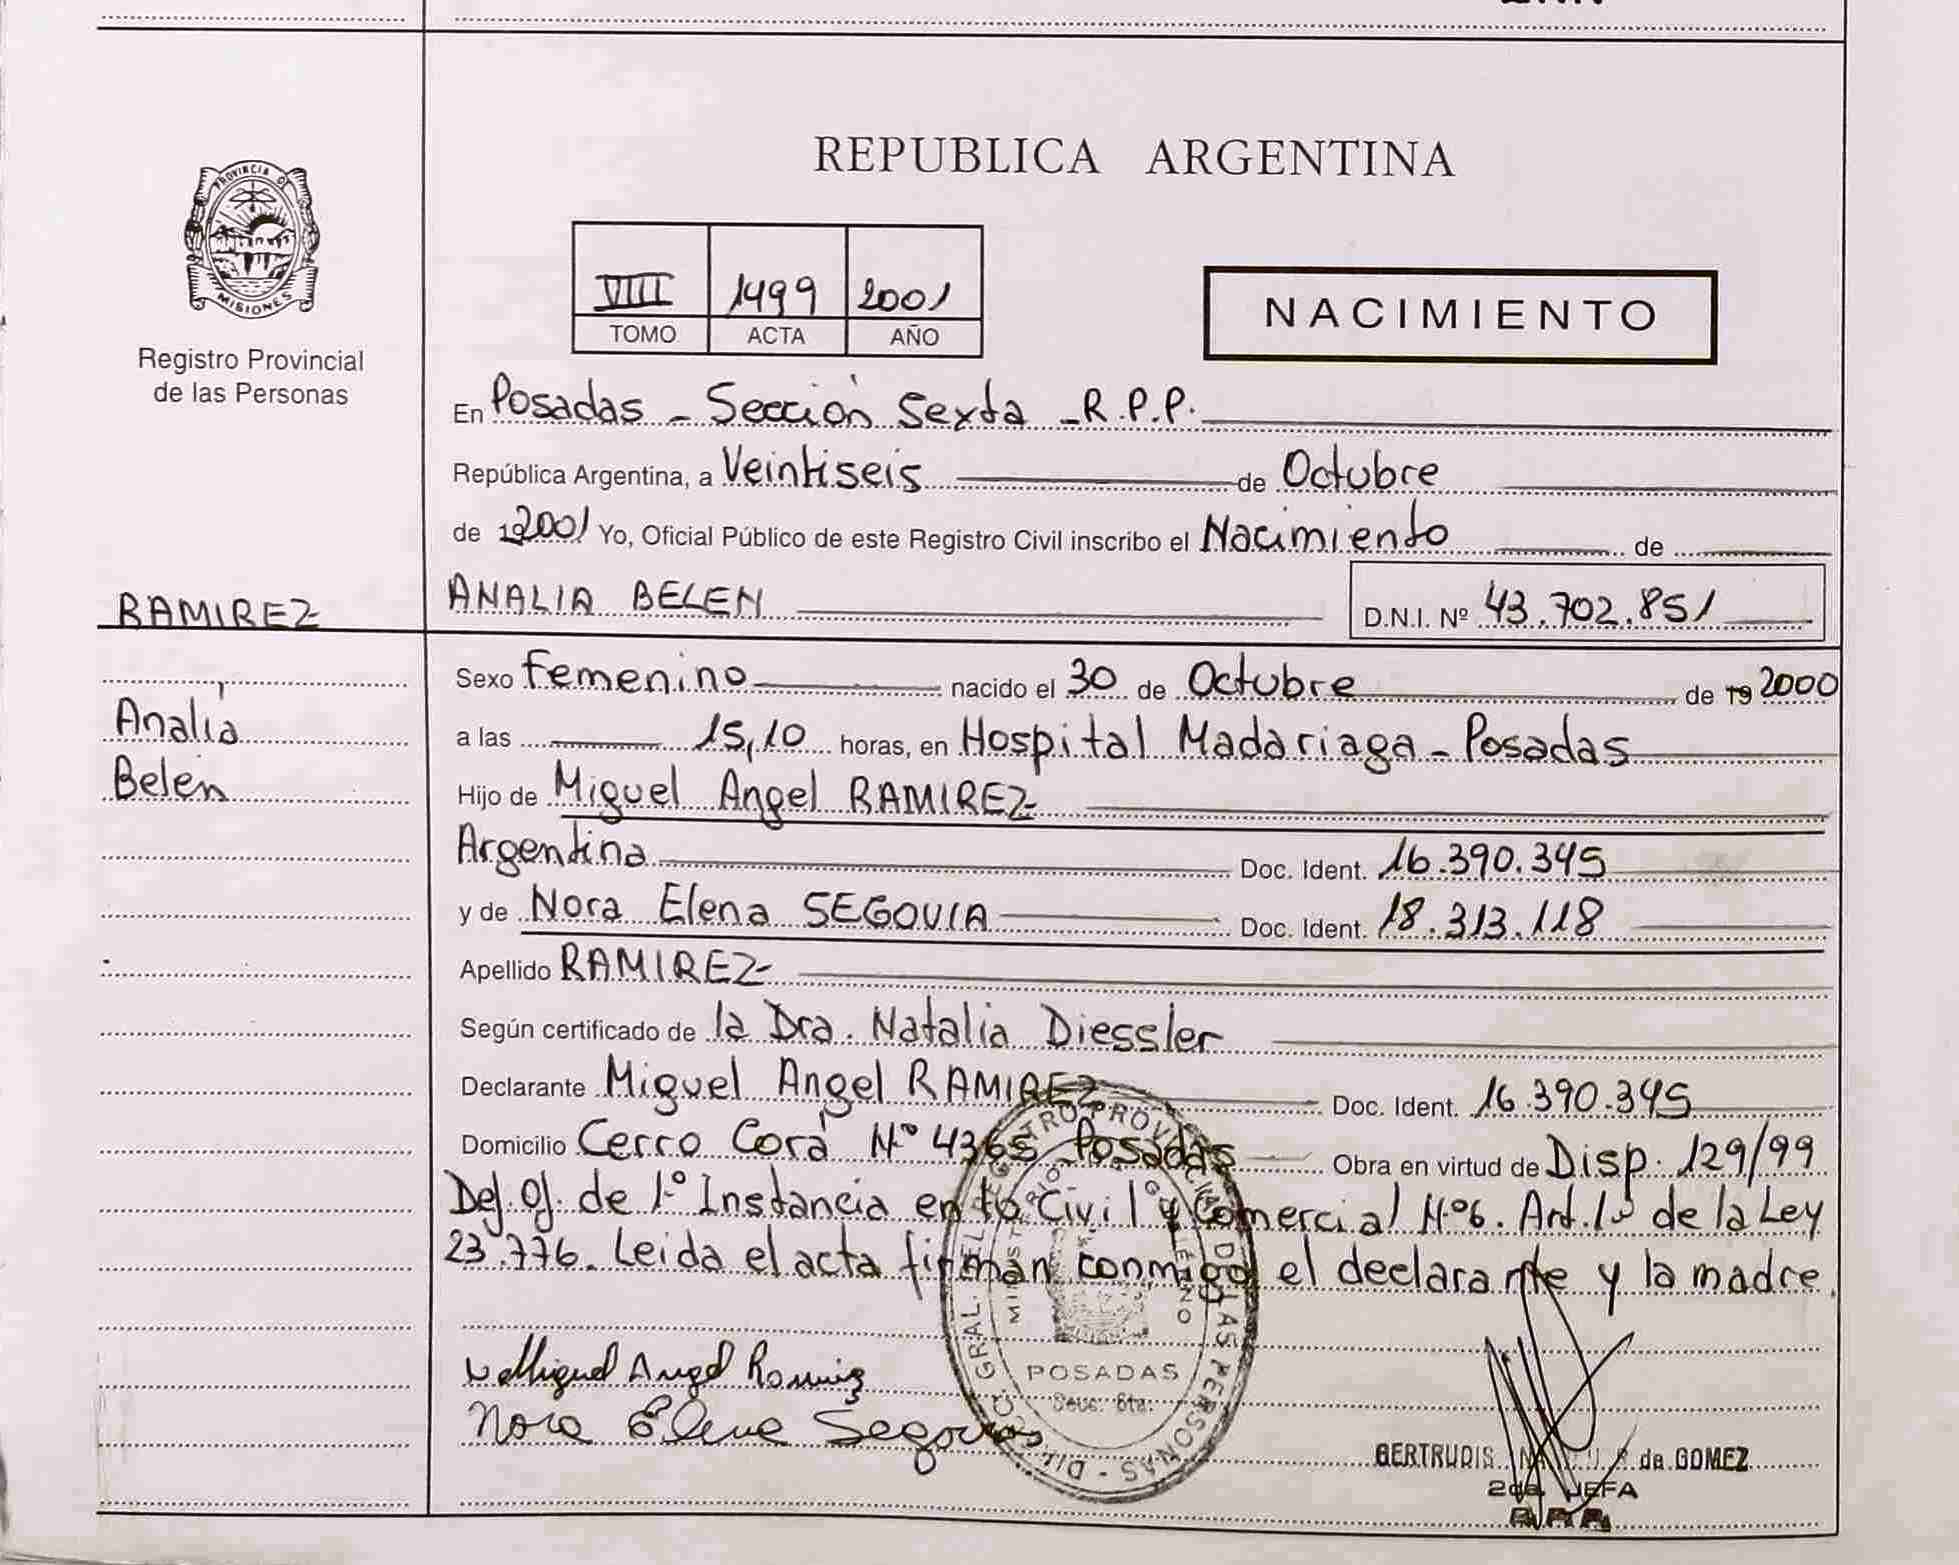 REPUBLICA ARGENTINA
PROVINCIA D
MISIONES
Registro Provincial
de las Personas
VIII 1499 2001
TOMO ACTA AÑO
NACIMIENTO
En Posadas - Sección Sexta - R.P.P.
República Argentina, a Veintiseis de Octubre
de 2001 Yo, Oficial Público de este Registro Civil inscribo el Nacimiento de
RAMIREZ
ANALIA BELEN D.N.I. Nº 43.702.851
Analía
Belén
Sexo Femenino nacido el 30 de Octubre de 19 2000
a las 15,10 horas, en Hospital Madariaga - Posadas
Hijo de Miguel Angel RAMIREZ
Argentina Doc. Ident. 16.390.345
y de Nora Elena SEGOVIA Doc. Ident. 18.313.118
Apellido RAMIREZ
Según certificado de la Dra. Natalia Diessler
Declarante Miguel Angel RAMIREZ Doc. Ident. 16.390.345
Domicilio Cerro Corá Nº 4365 Posadas Obra en virtud de Disp. 129/99
de 1º Instancia en lo Civil y Comercial Nº6. Art. 1º de la Ley
23.776. Leida el acta firman conmigo el declarante y la madre.
Miguel Angel Ramirez
Nora Elena Segovia
POSADAS
Secc. 6ta.
GERTRUDIS de GOMEZ
2da. JEFA
R.P.P.